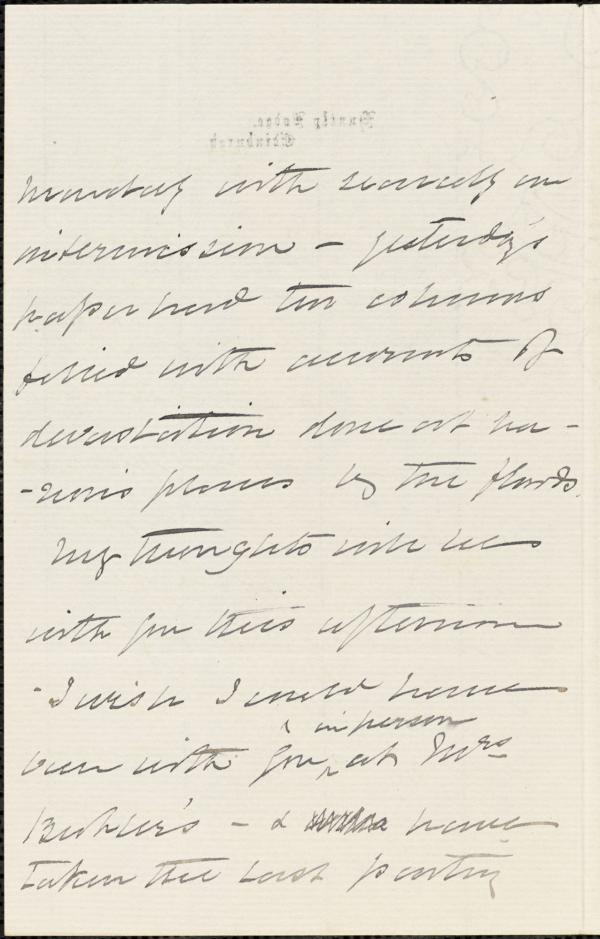 Huntly Lodge.
Edinburgh
Monday with scarcely an
intermission – yesterday's
paper had two columns
filled with accounts of
devastation done at va-
-rious places by the floods.
My thoughts will be
with you this afternoon
- I wish I could have
in person
been with you at Mrs
– & have
taken the last parting